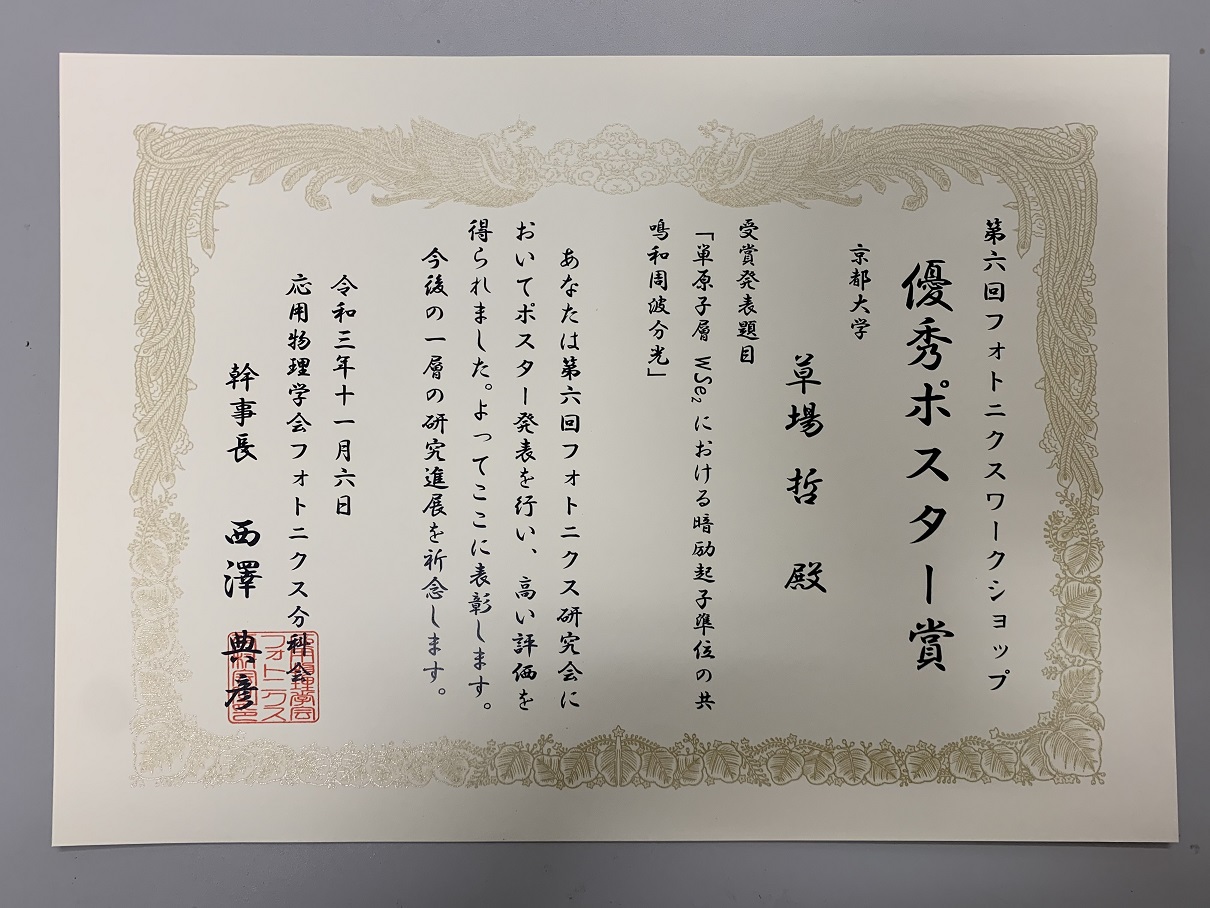 第六回フォトニクスワークショップ
優秀ポスター賞
京都大学
草場 哲 殿
受賞発表題目
「単原子層 WSe₂ における暗励起子準位の共
鳴和周波分光」
あなたは第六回フォトニクス研究会に
おいてポスター発表を行い、高い評価を
得られました。よってここに表彰します。
今後の一層の研究進展を祈念します。
令和三年十一月六日
応用物理学会フォトニクス分科会
幹事長 西澤 典彦
理学会
フォトニクス